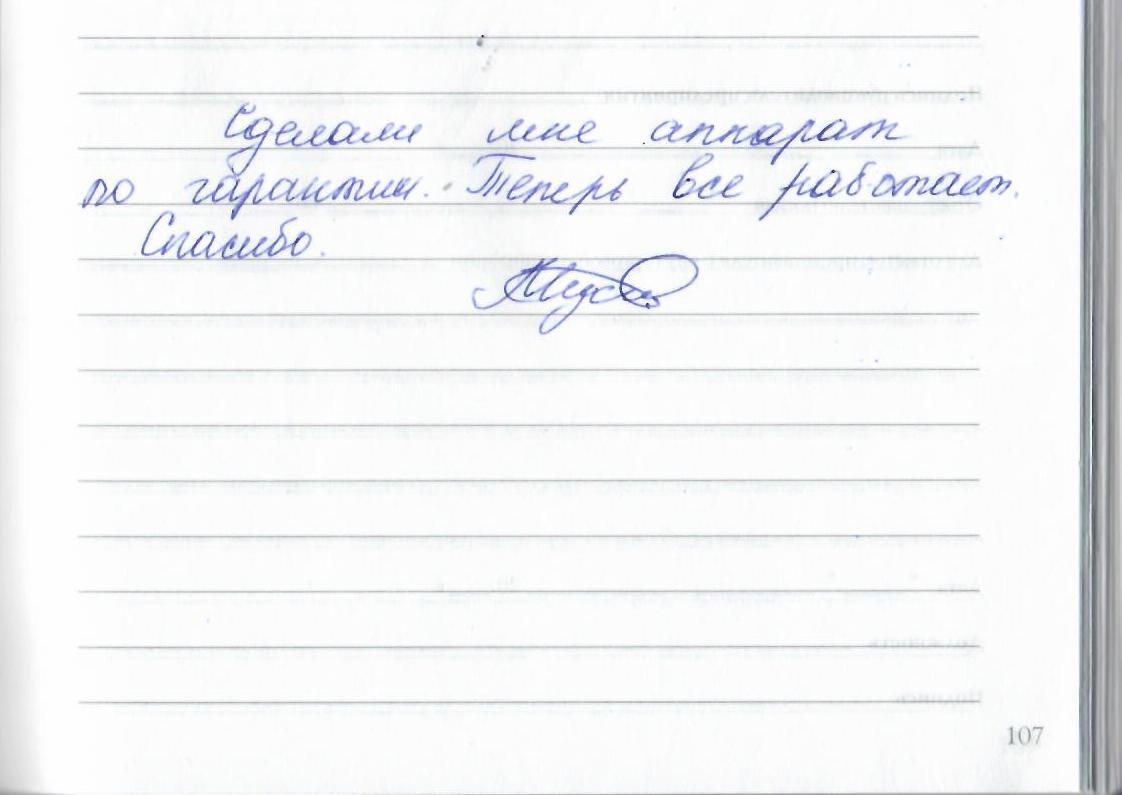 Сделали мне аппарат
по гарантии. Теперь все работает.
Спасибо.
107